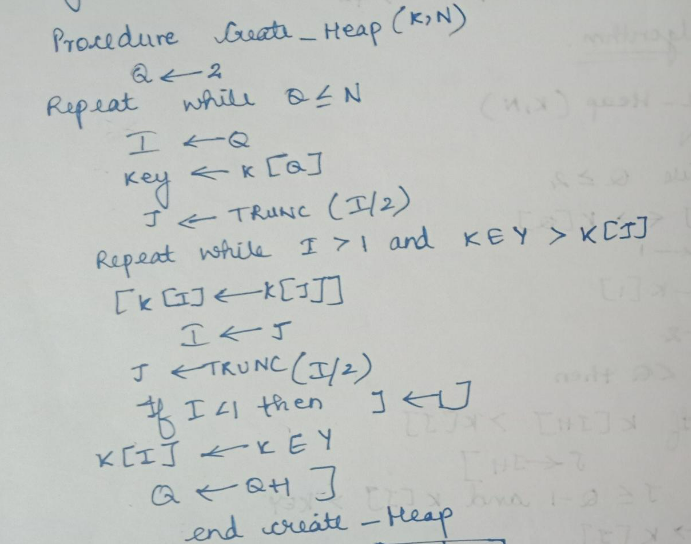 Procedure Create_Heap (K,N)
Q ← 2
Repeat while Q ≤ N
I ← Q
Key ← K [Q]
J ← TRUNC (I/2)
Repeat while I > 1 and KEY > K[J]
[K [I] ← K[J]]
I ← J
J ← TRUNC (I/2)
If I < 1 then J ←
K[I] ← KEY
Q ← Q+1 ]
end create - Heap